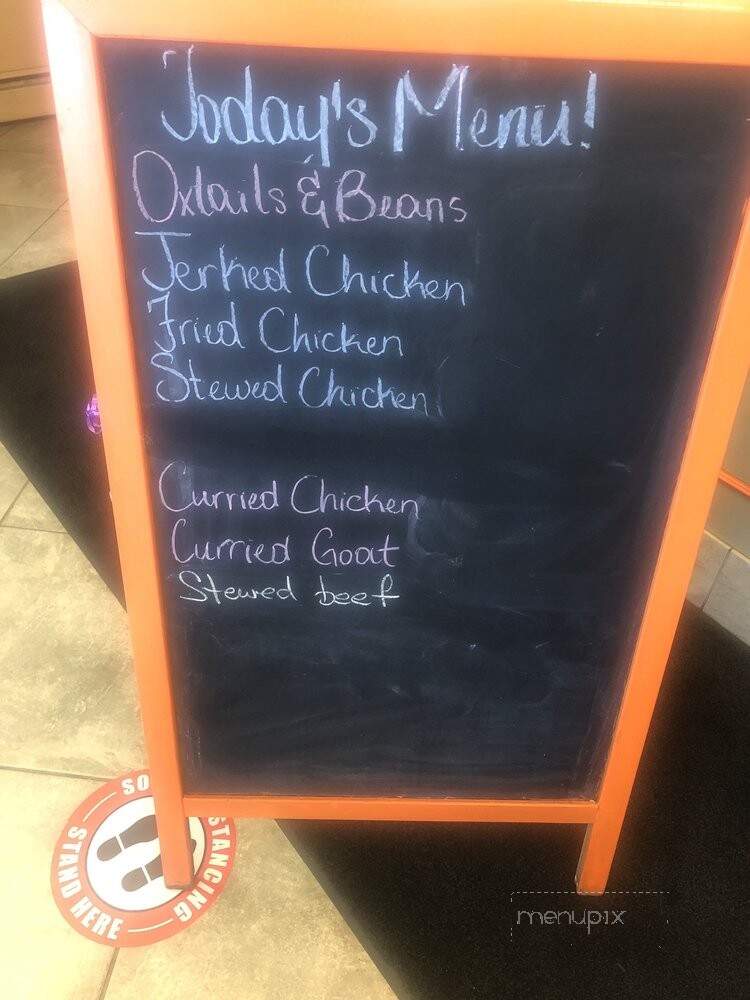 Today's Menu!
Oxtails & Beans
Jerked Chicken
Fried Chicken
Stewed Chicken
Curried Chicken
Curried Goat
Stewed beef
STAND HERE
menupix